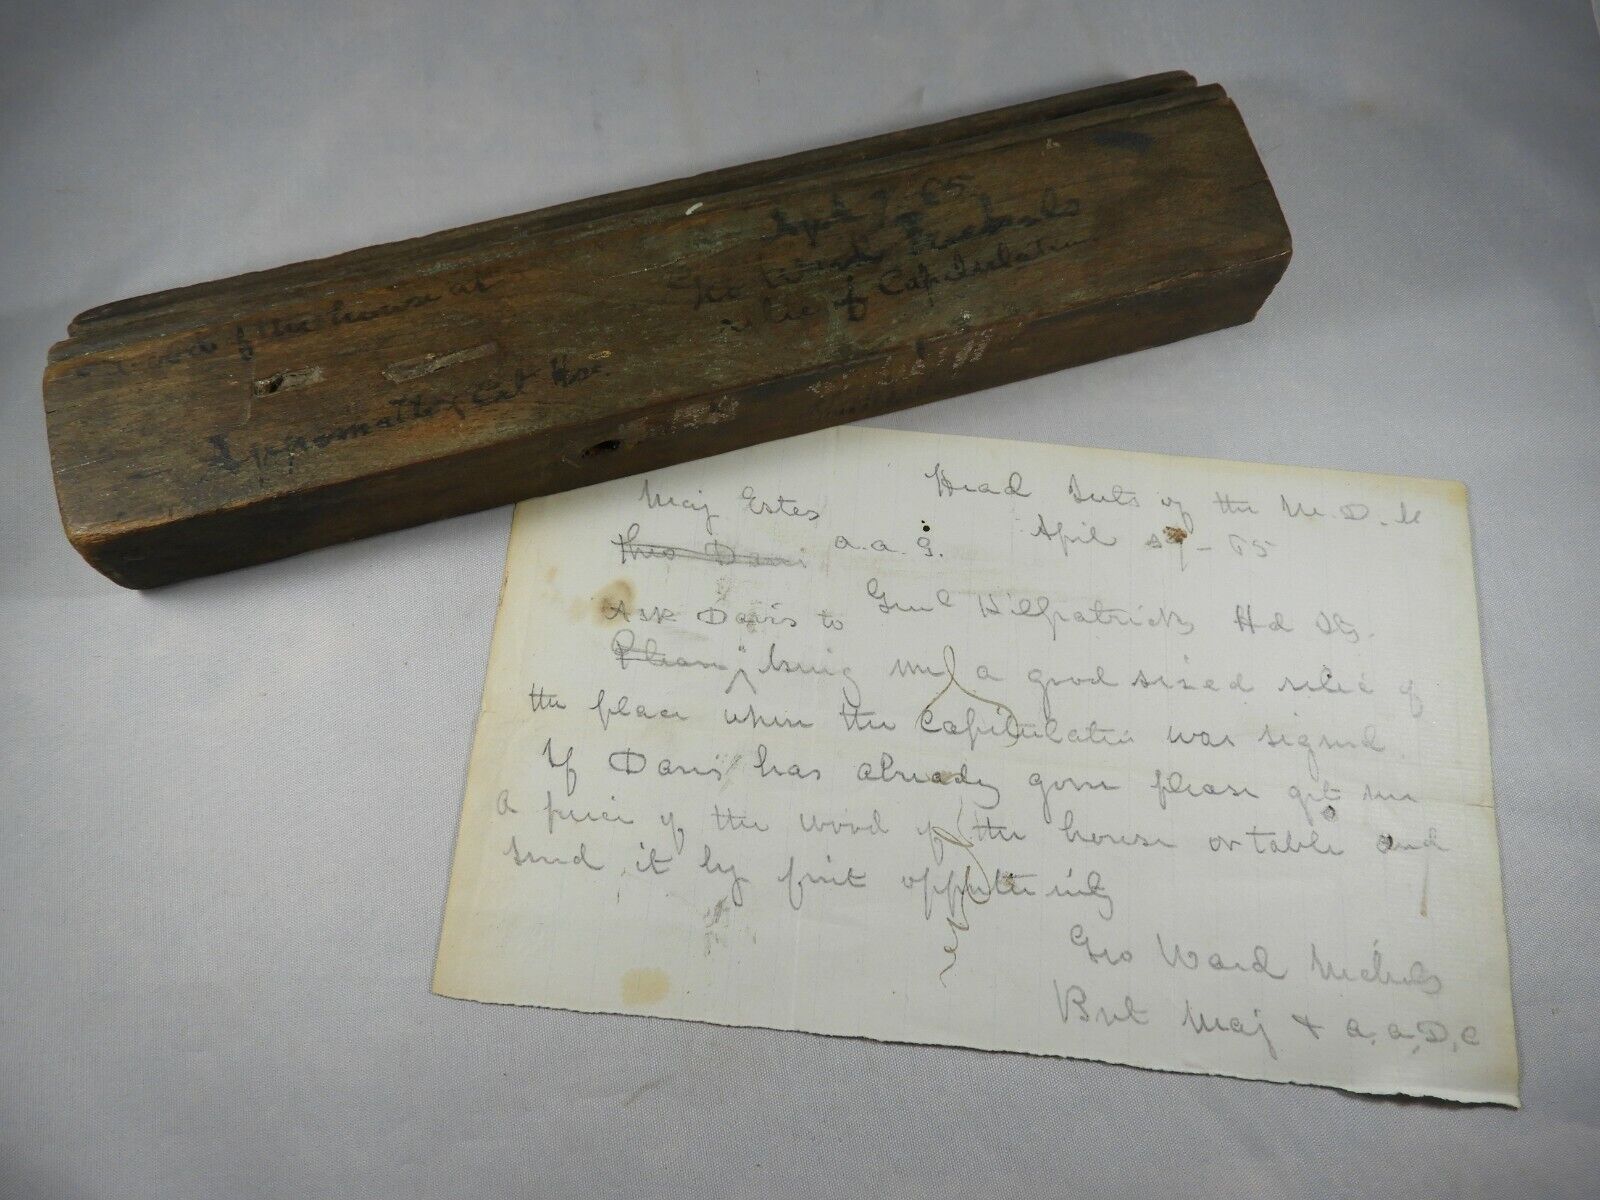 Wood of the house at
Appomattox Ct Hse.
April 9 65
Geo Ward Nichols
relic of Capitulation
Head Qrts of the M. D. M
Maj Estes April 29 - 65
a. a. G.
Theo Davis
Genl Kilpatricks Hd Qts.
Ask Davis to
Please bring me a good sized relic of
the place where the Capitulation was signed.
If Davis has already gone please get me
a piece of the wood of the house or table and
send it by first opportunity
Geo Ward Nichols
Bvt Maj & a, a, D, C